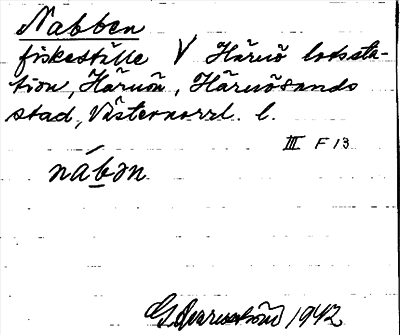 Nabben
fiskeställe V Härnö lotssta-
tion, Härnön, Härnösands
stad, Västernorrl. l.
III F 13
nábən
1942